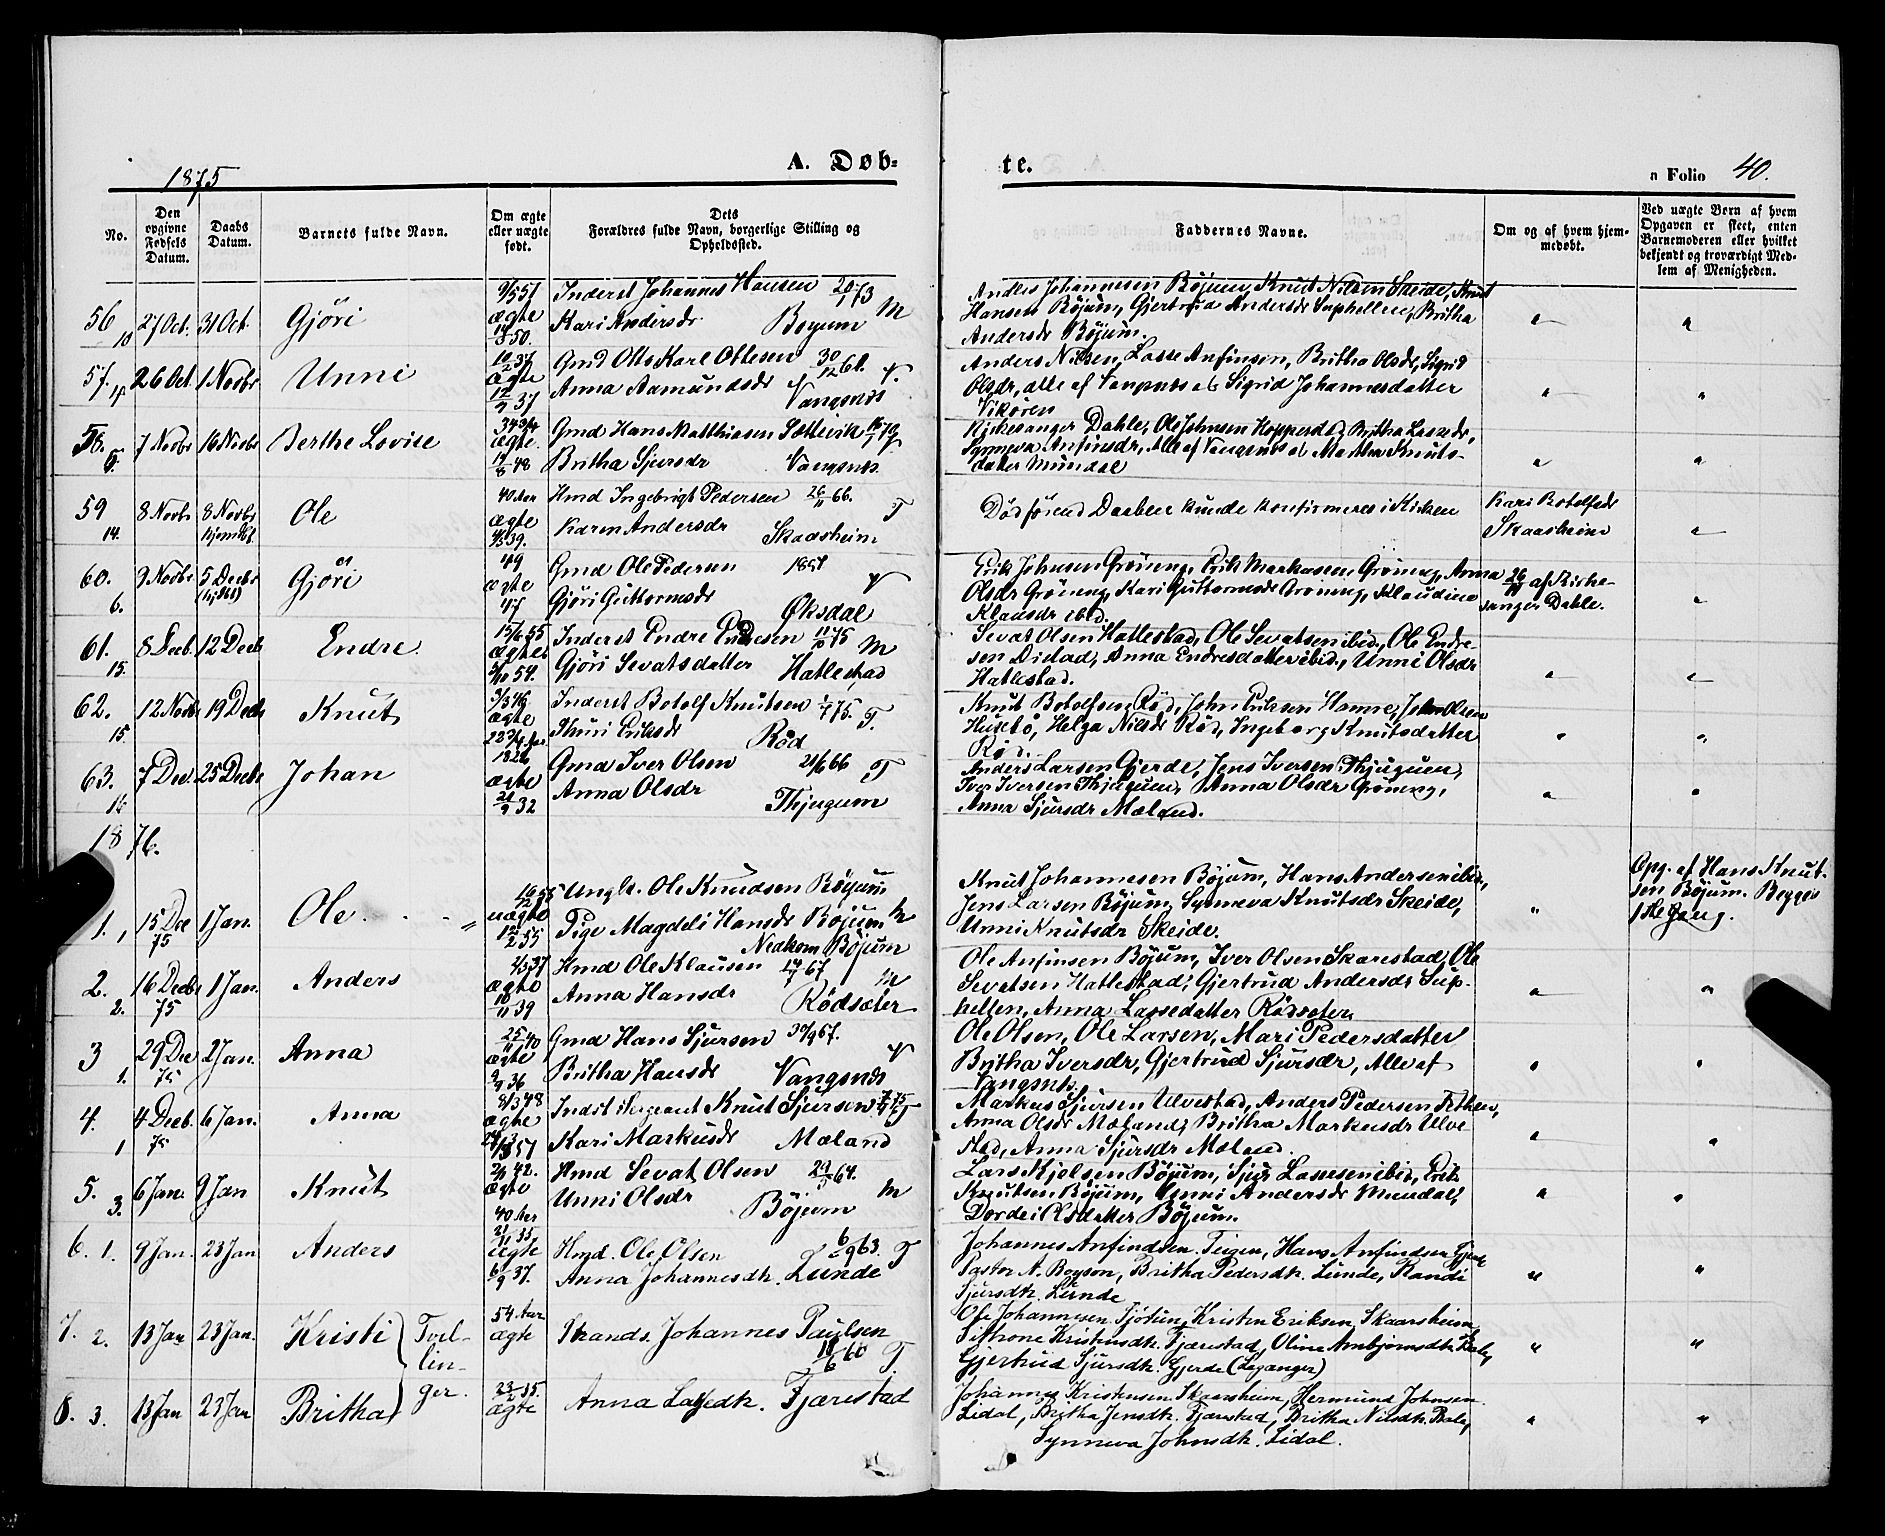 1875
A. Døb-
te.
n Folio 40.
No.
Den opgivne Fødsels Datum.
Daabs Datum.
Barnets fulde Navn.
Om ægte eller uægte født.
Dets Forældres fulde Navn, borgerlige Stilling og Opholdssted.
Faddernes Navne.
Om og af hvem hjemmedøbt.
Ved uægte Børn af hvem Opgaven er skeet, enten Barnemoderen eller hvilket bekjendt og troværdigt Medlem af Menigheden.
56 10 27 Oct. 31 Oct. Gjöri ægte
Inderst Johannes Hansen
Kari Andersdr Bøyum M
Anders Johannesen Böjum, Knut Nilsen Skeide, Knut
Hansen Böjum, Gjertrud Andersdr Suphellen, Britha
Andersdr Böjum.
57. 26 Oct. 1 Novbr Unni ægte
Gmd Otto Karl Ottesen
Anna Aamundsdr Vangsnæs V.
Anders Nilsen, Lasse Anfinsen, Britha Olsdr, Sigrid
Olsdr, alle af Vangsnæs og Sigrid Johannesdatter
Vikören
58. 7 Novbr 16 Novbr Berthe Lovise ægte
Gmd Hans Matthiasen Sættevik
Britha Sjursdr Vangsnæs
Kirkesanger Dahle, Ole Johnsen Hopperstad, Britha Lassedr,
Synneva Anfinsdr, Alle af Vangsnæs og Martha Knuts-
datter Mundal
59 14. 8 Novbr 8 Novbr Ole 40 Aar ægte
Hmd Ingebrigt Pedersen 26/11 66. T
Karen Andersdr Skaasheim
Död förend Daaben kunde konfirmeres i Kirken
Kari Botolfsdr
Skaasheim
60. 6. 9 Novbr 5 Decbr Gjöri 49 ægte 47
Gmd Ole Pedersen V
Gjöri Guttormsdr Øksdal
Erik Johnsen Gröneng, Erik Markusen Gröneng, Anna
Olsdr Gröneng, Kari Guttormsdr Gröneng, Klaudine
Klausdr ibid.
26/11 af Kirke-
sanger Dahle.
61. 15. 8 Decb. 12 Decb Endre ægte
Inderst Endre Endresen 11/10 75 M
Gjöri Sevatsdatter Hatlestad
Sevat Olsen Hatlestad, Ole Sevatsen ibid., Ole Endre-
sen Distad, Anna Endresdatter ibid., Unni Olsdr
Hatlestad.
62. 15. 12 Novbr 19 Decbr Knut ægte
Inderst Botolf Knutsen 1/7 75. T.
Thuri Eriksdr Röd
Knut Botolfsen Röd, John Eriksen Hamre, John Olsen
Husebö, Helga Nilsdr Röd, Ingeborg Knutsdatter
Röd.
63. 16 7 Dec. 25 Decbr Johan 1826 ægte
Gmd Iver Olsen 21/6 66 T
Anna Olsdr Thjugum
Anders Larsen Gjerde, Jens Iversen Thjugum,
Iver Iversen Thjugum, Anna Olsdr Gröneng,
Anna Sjursdr Mæland.
1876.
1. 1 15 Dec 75 1 Jan. Ole uægte
Ungkr. Ole Knudsen Böyum
Pige Magdeli Hansdr Böjum M
Nedkom Böjum
Knut Johannesen Böjum, Hans Andersen ibid,
Jens Larsen Böjum, Synneva Knutsdr Skeide,
Unni Knutsdr Skeide.
Opg. af Hans Knut-
sen Böjum. Begges
1ste Gang.
2. 2. 16 Decbr 75 1 Jan. Anders ægte
Hmd Ole Klausen M
Anna Hansdr Rödsæter
Ole Anfinsen Böjum, Iver Olsen Skarestad, Ole
Sevatsen Hatlestad, Gjertrud Andersdr Sup-
hellen, Anna Lassedatter Rödsæter
3 1. 29 Dec 75 2 Jan. Anna ægte
Gmd Hans Sjursen V
Britha Hansdr Vangsnæs
Ole Olsen, Ole Larsen, Mari Pedersdatter
Britha Iversdr, Gjertrud Sjursdr, Alle af
Vangsnæs.
4. 1 4 Decb. 75 6 Jan. Anna ægte
Indst Sergeant Knut Sjursen T
Kari Markusdr Mæland
Markus Sjursen Ulvestad, Anders Pedersen Fethen,
Anna Olsdr Mæland, Britha Markusdr Ulve
stad, Anna Sjursdr Mæland.
5. 3. 6 Jan. 9 Jan Knut ægte 40 Aar
Hmd Sevat Olsen M
Unni Olsdr Böjum
Lars Kjelsen Böjum, Sjur Lassesen ibid, Erik
Knutsen Böjum, Unni Andersdr Mundal,
Dordei Olsdatter Böjum.
6. 1. 9 Jan. 23 Jan Anders ægte
Hmd. Ole Olsen 6/9 63. T
Anna Johannesdtr. Lunde
Johannes Anfindsen Teigen, Hans Anfindsen Gjerde
Pastor A. Boyson, Britha Pedersdtr. Lunde, Randi
Sjursdtr. Lunde
7. 2. 13 Jan 23 Jan. Kristi 54 Aar ægte
Tvil-
lin-
ger.
Strands. Johannes Paulsen
18/6 60 T.
Ole Johannesen Sjötun, Kristen Eriksen Skaarsheim,
Kristensdtr. Fjærestad, Oline Arnbjørnsdtr. Bale,
Gjertrud Sjursdtr. Gjerde (Leganger)
8. 3. 13 Jan 23 Jan Britha ægte
Anna Lassedtr. Fjærestad
Johannes Kristensen Skaarsheim, Hermund Johnsen
Lidal, Britha Jensdtr. Fjærestad, Britha Nilsdtr. Bale,
Synneva Johnsdtr. Lidal.